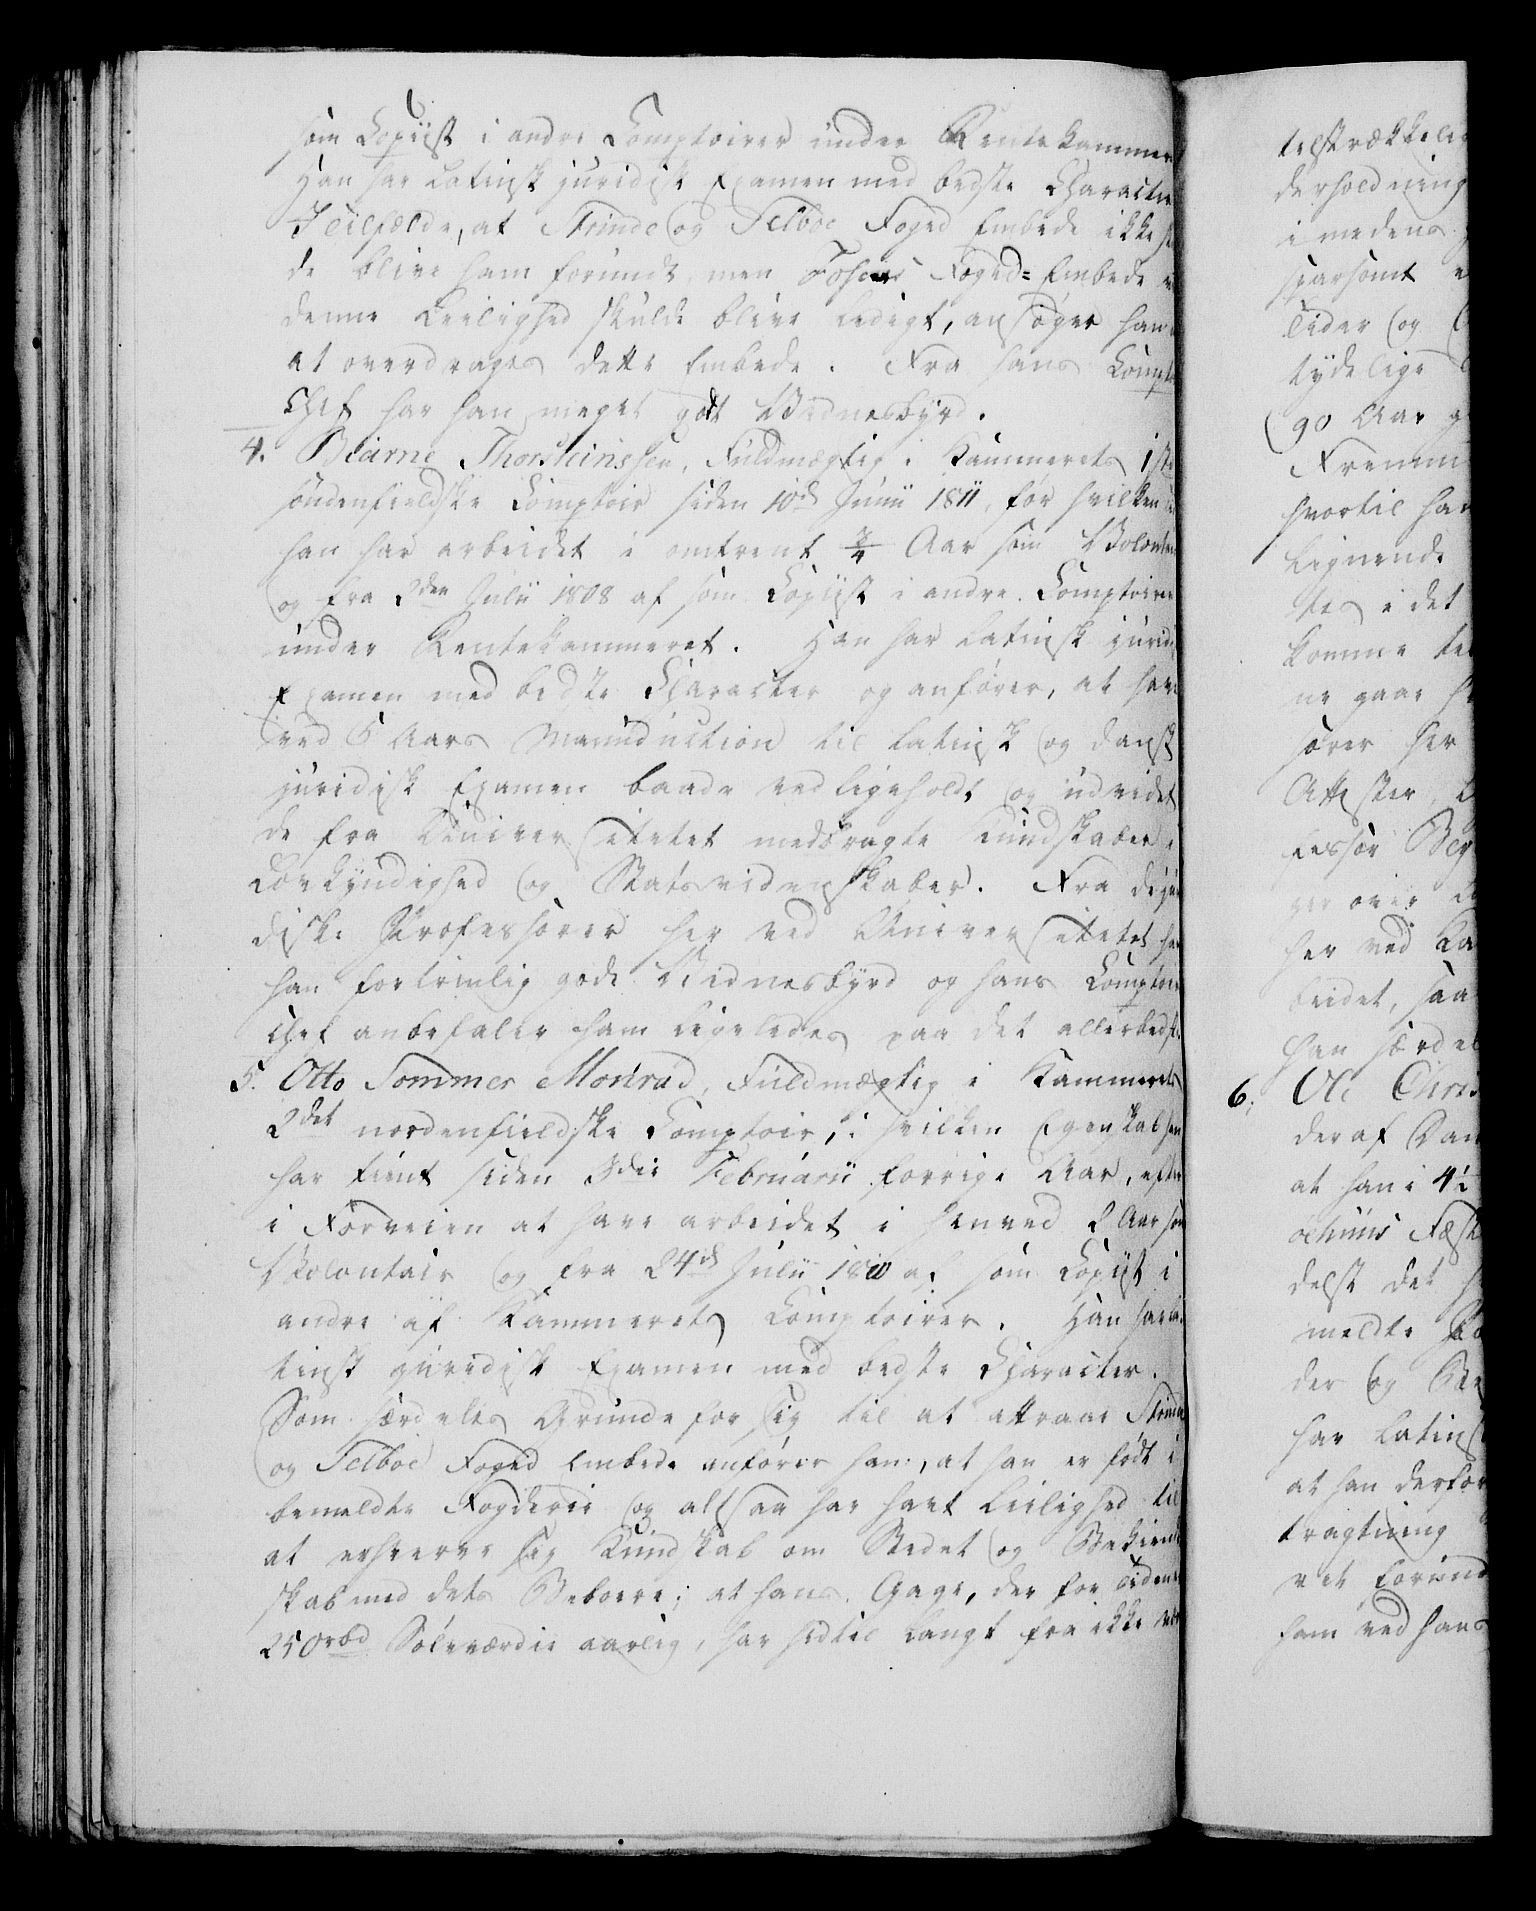 som Copiist i andre Comptoirer under Rentekammer
Han har Latinsk juridisk Examen med bedste Character
I Tilfælde, at Strinde og Selboe Foged Embede ikke
de blive ham forundt, men Fosens Foged-Embede
denne Leilighed skulde blive ledigt, ansøger han
at overdrages dette Embede. Fra hans Compt
Chef har han meget godt Vidnesbyrd.
4. Biarne Thorsteinssen, Fuldmægtig i Kammerets 1ste
søndenfieldske Comptoir siden 10de Junii 1811, før hvilken
han har arbeidet i omtrent 3/4 Aar som Volontair
og fra 2den Julii 1808 af som Copiist i andre Comptoirer
under Rentekammeret. Han har Latinsk jurid
Examen med bedste Character og anfører, at have
ved 5 Aars Manuduction til latinsk og dansk
juridisk Examen baade vedligeholdt og udvidet
de fra Universitetet medbragte Kundskaber i
Lovkyndighed og Statsvidenskaber. Fra de ju
diske Professorer her ved Universitetet har
han fortrinlig gode Vidnesbyrd og hans Comptoir
Chef anbefaler ham ligeledes paa det allerbedste
5. Otto Sommer Monrad, Fuldmægtig i Kammerets
2det nordenfieldske Comptoir, i hvilken Egenskab han
har tient siden 3die Februarii forrige Aar, efter
i Forveien at have arbeidet i henved 2 Aar som
Volontair og fra 24de Julii 1810 af som Copiist i
andre af Kammerets Comptoirer. Han har la-
tinsk juridisk Examen med bedste Character.
Som særdeles Grunde for sig til at attraae Strinde
og Selboe Foged Embede anfører han, at han er født i
bemeldte Fogderie og altsaa har havt Leilighed til
at erhverve sig Kundskab om Stedet og Bekiendt
skab med dets Beboere; at hans Gage, der for Tiden
250 rbd Sølvværdie aarlig, har hidtil langt fra ikke
telstrækkelig
derholdning
imedens
sparsomt
Tider og
tydelige
90 Aar
Fremm
hvortil har
lignende
tes i det
komme
ne gaar
sorer her
Attester,
fessor
ger over
her ved
beidet, saa
han særdel
6. Ole Chris
deraf
at han i 4½
delst det
meldte
der og
har Latinsk
at han derfor
tragtning
ret forund
ham ved hans